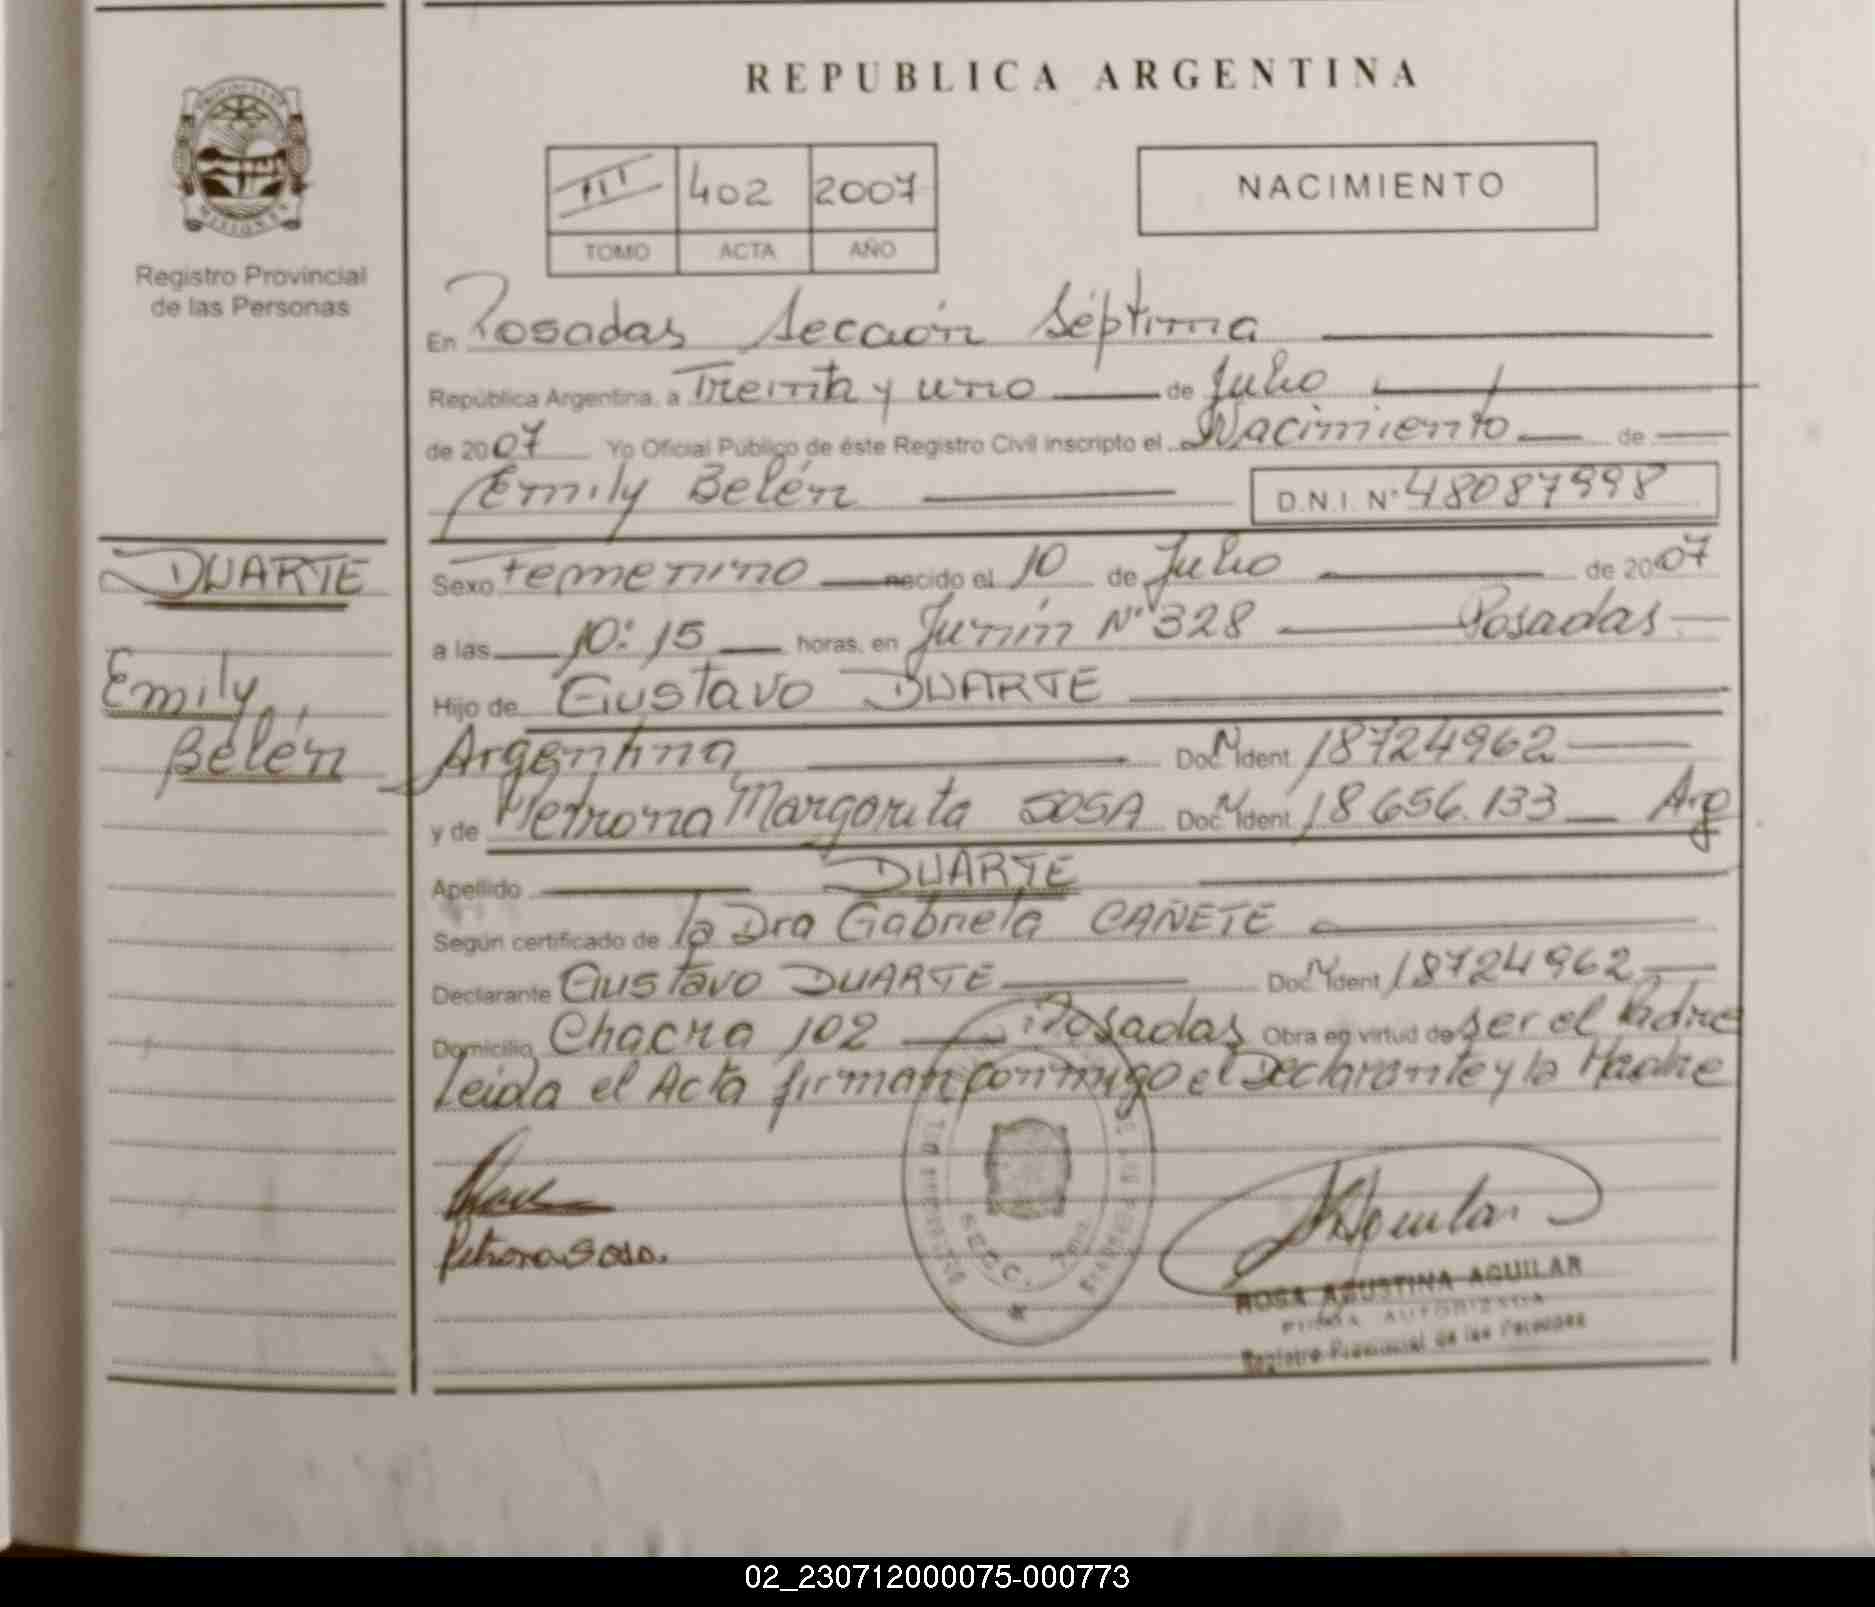 REPUBLICA ARGENTINA
PROVINCIA
MISIONES
Registro Provincial
de las Personas
III 402 2007
TOMO ACTA AÑO
NACIMIENTO
En Posadas Sección Séptima
República Argentina, a Treinta y uno de Julio
de 2007 Yo Oficial Público de éste Registro Civil inscripto el Nacimiento de
Emily Belén D.N.I. Nº 48087998
DUARTE
Emily
Belén
Sexo Femenino necido el 10 de Julio de 2007
a las 10:15 horas, en Junín Nº 328 Posadas
Hijo de Gustavo DUARTE
Argentina Doc N Ident 18724962
y de Petrona Margarita SOSA Doc N Ident 18656.133 Arg
Apellido DUARTE
Según certificado de la Dra Gabriela CAÑETE
Declarante Gustavo DUARTE Doc N Ident 18724962
Domicilio Chacra 102 Posadas Obra en virtud de ser el Padre
Leida el Acta firman conmigo el Declarante y la Madre
Petrona Sosa.
SECC. 7ma
Aguilar
ROSA AGUSTINA AGUILAR
FIRMA AUTORIZADA
Registro Provincial de las Personas
02_230712000075-000773